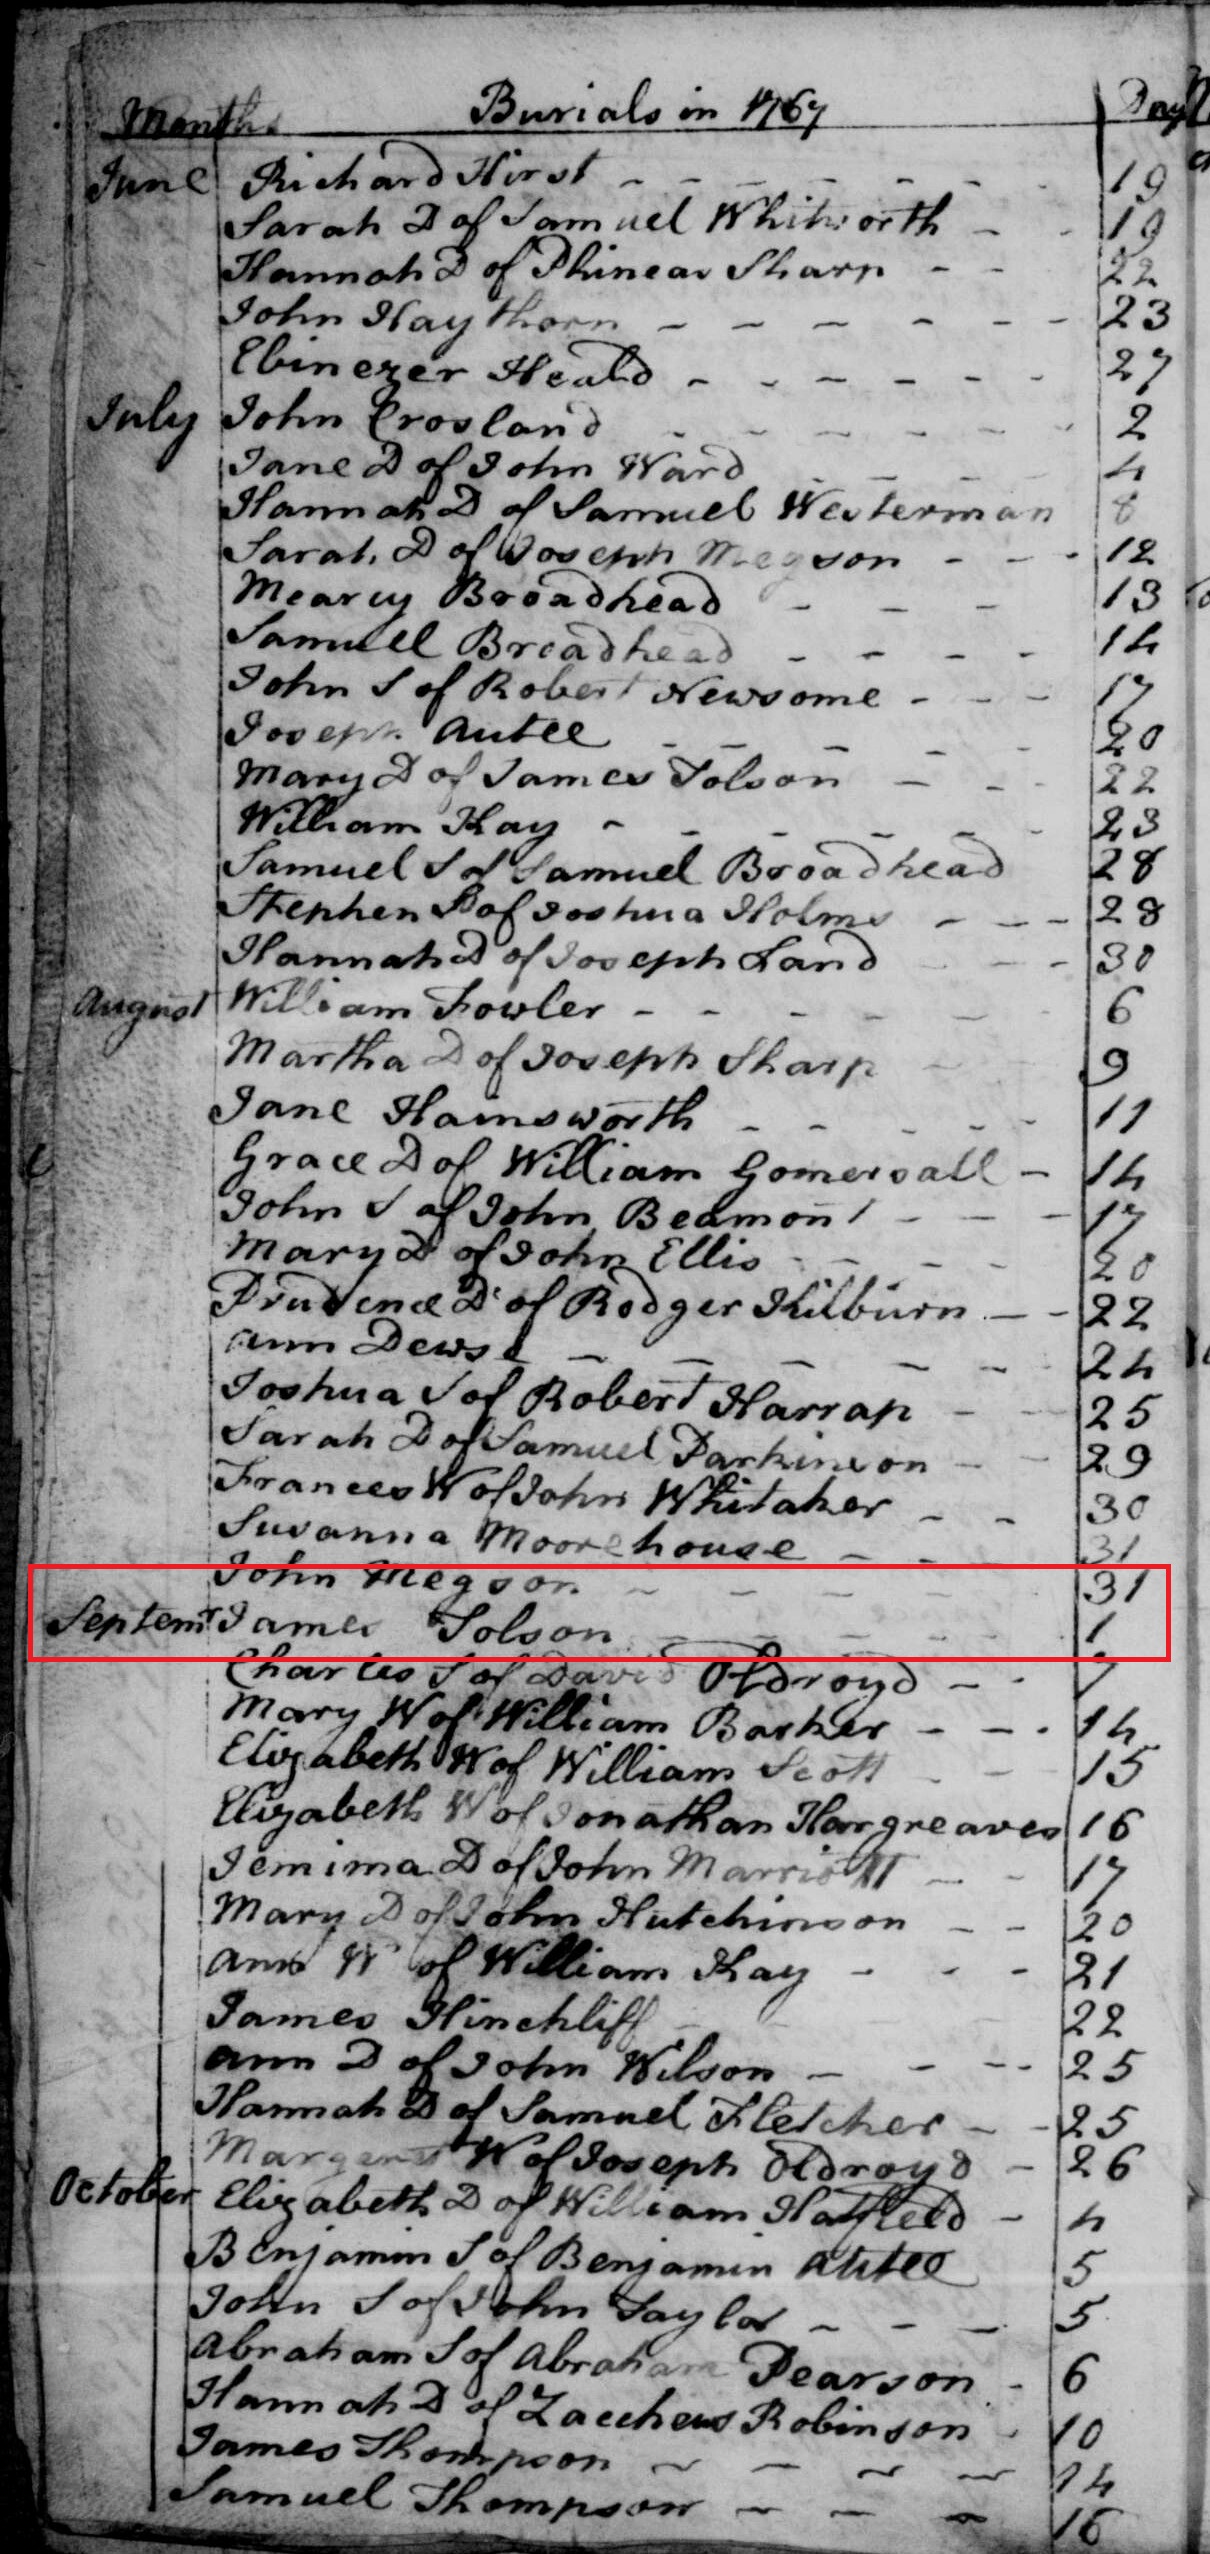 Months Burials in 1767 Days
June Richard Hirst - - - - - - 19
Sarah D of Samuel Whitworth - - 19
Hannah D of Phineas Sharp - - 22
John Haythorn - - - - - - 23
Ebinezer Heald - - - - - - 27
July John Crosland - - - - - - 2
Jane D of John Ward - - - 4
Hannah D of Samuel Westerman 8
Sarah D of Joseph Megson - - - 12
Mearcy Broadhead - - - 13
Samuel Broadhead - - - - 14
John S of Robert Newsome - - - 17
Joseph Autee - - - - - 20
Mary D of James Tolson - - - 22
William Kay - - - - - - 23
Samuel S of Samuel Broadhead 28
Stephen S of Joshua Holms - - - 28
Hannah D of Joseph Land - - - 30
August William Fowler - - - - - - 6
Martha D of Joseph Sharp - - 9
Jane Hainsworth - - - - - 11
Grace D of William Gomersall - 14
John S of John Beamont - - - 17
Mary D of John Ellis - - - - 20
Prudence D of Rodger Kilburn - - 22
Ann Dews - - - - - - 24
Joshua S of Robert Harrap - - 25
Sarah D of Samuel Parkinson - - 29
Frances W of John Whitaker - - 30
Susanna Moorehouse - - 31
John Megson - - - - 31
Septemr James Tolson - - - - - 1
Charles S of David Oldroyd - - 7
Mary W of William Barker - - - 14
Elizabeth W of William Scott - - 15
Elizabeth W of Jonathan Hargreaves 16
Jemima D of John Marriott - - 17
Mary D of John Hutchinson - - 20
Ann W of William Kay - - - 21
James Hinchliff - 22
Ann D of John Wilson - - - - 25
Hannah D of Samuel Fletcher - - 25
Margaret W of Joseph Oldroyd - 26
October Elizabeth D of William Hatfield - 4
Benjamin S of Benjamin Autee 5
John S of John Taylor - - - 5
Abraham S of Abraham Pearson - 6
Hannah D of Zaccheus Robinson - 10
James Thompson - - - - 14
Samuel Thompson - - - 16